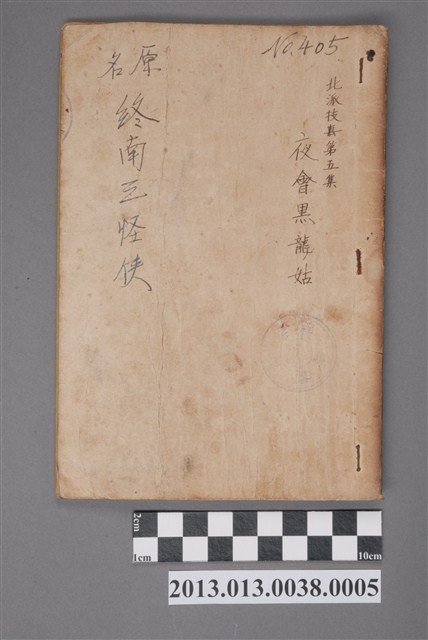 No.405
北派技擊第五集
夜會黑龍姑
原名
終南三怪俠
2cm
1cm
10cm
2013.013.0038.0005